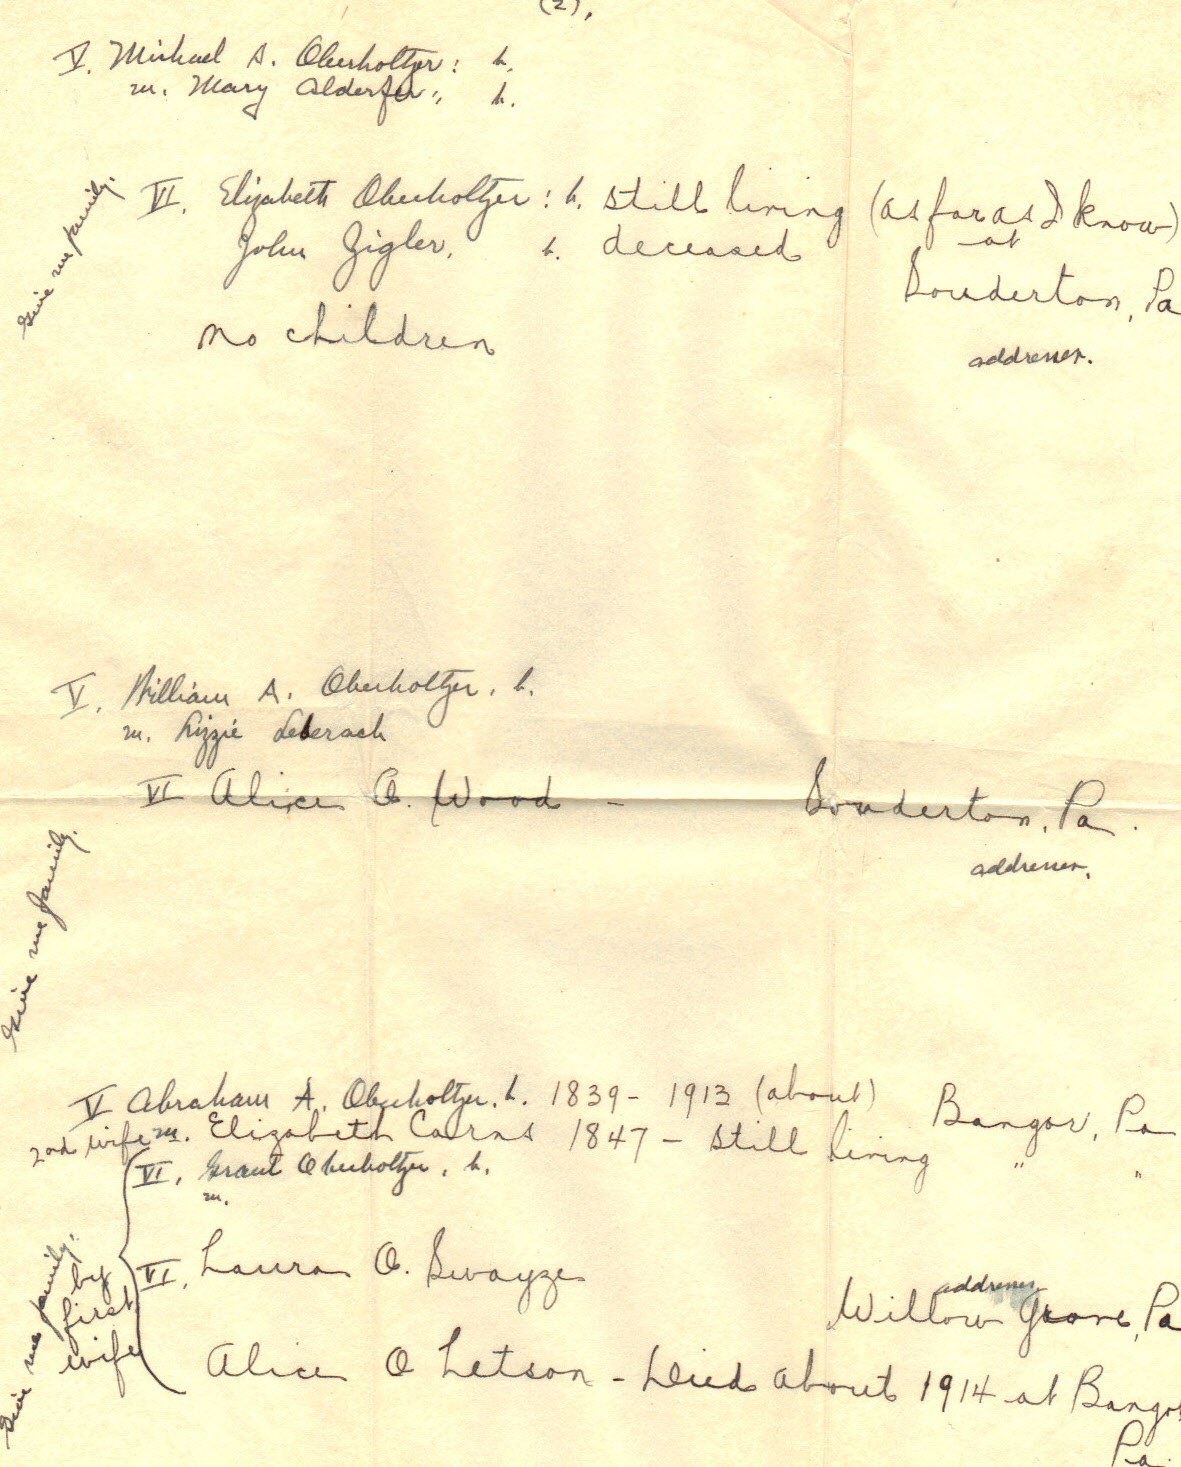 (2).
V. Michael A. Oberholtzer: b.
m. Mary Alderfer; b.
Give me family.
VI. Elizabeth Oberholtzer: b. still living (as far as I know)
John Zigler. b. deceased at
Souderton, Pa
No children
addresses.
V. William A. Oberholtzer. b.
m. Lizzie Leberach
VI Alice O. Wood - Souderton, Pa.
addresses.
Give me family.
V Abraham A. Oberholtzer. b. 1839 - 1913 (about) Bangor, Pa
2nd wife m. Elizabeth Cairns 1847 - still living " "
VI. Grant Oberholtzer. b.
m.
VI. Laura O. Swayze
addresses
Willow Grove, Pa
Give me family.
by
first
wife
Alice O Letson - Died about 1914 at Bangor
Pa.